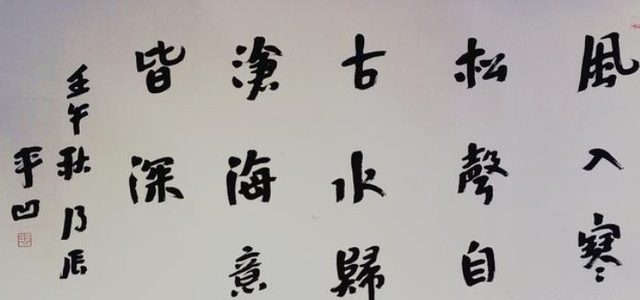 風入寒
松聲自
古水歸
滄海意
皆深
壬午秋乃辰
平凹